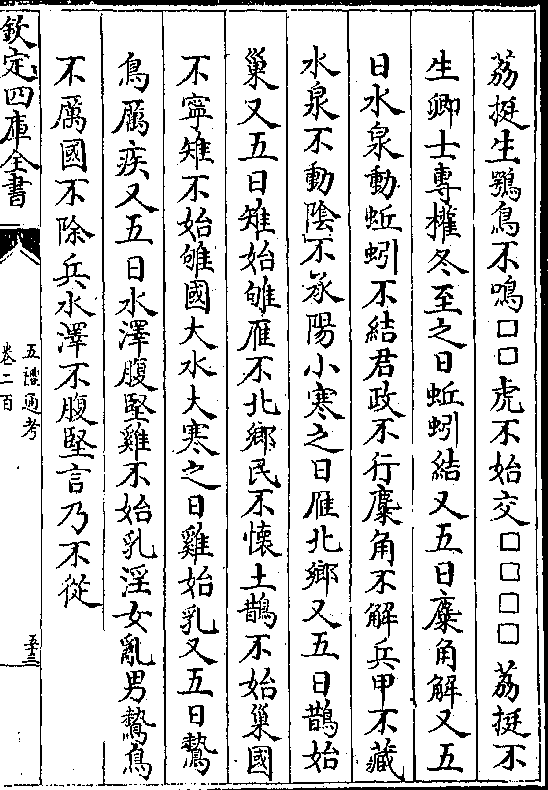 荔挺生鶚鳥不鳴□□虎不始交□□□□荔挺不
生卿士專權冬至之日蚯蚓結又五日麋角解又五
日水泉動蚯蚓不結君政不行麋角不解兵甲不藏
水泉不動隂不承陽小寒之日雁北鄉又五日鵲始
巢又五日雉始雊雁不北鄉民不懷土鵲不始巢國
不寧雉不始雊國大水大寒之日雞始乳又五日鷙
鳥厲疾又五日水澤腹堅雞不始乳淫女亂男鷙鳥
不厲國不除兵水澤不腹堅言乃不從
欽定四庫全書
五禮通考
卷二百
五十三